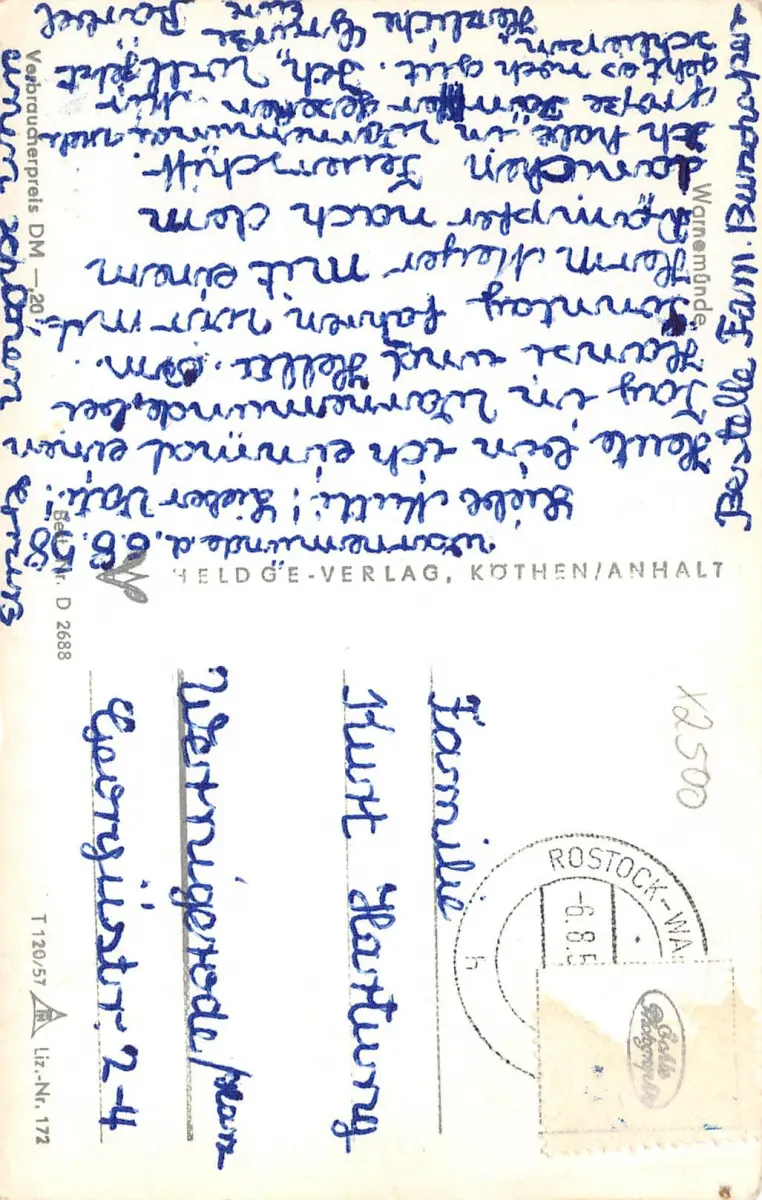 Warnemünde d. 6.8.58
Liebe Mutti! Lieber Vati!
Heute bin ich einmal einen
Tag in Warnemünde, bei
Hansi und Hella. Am
Sonntag fahren wir mit
Herrn Meyer mit einem
Dampfer nach dem
dänichen Feuerschiff.
Ich habe in Warnemünde
große Dampfer gesehen. Mir
geht es noch gut. Ich will jetzt
schließen.
Herzliche Grüße Bärbel
Bestelle Fam.
einen schönen Gruß
Warnemünde
Verbraucherpreis DM —20
Best.-Nr. D 2688
HELDGE-VERLAG, KÖTHEN/ANHALT
Familie
Kurt Hartung
Wernigerode/Harz
Georgiistr. 2-4
T 120/57 Liz.-Nr. 172
X2500
ROSTOCK-WA
-6.8.5
h